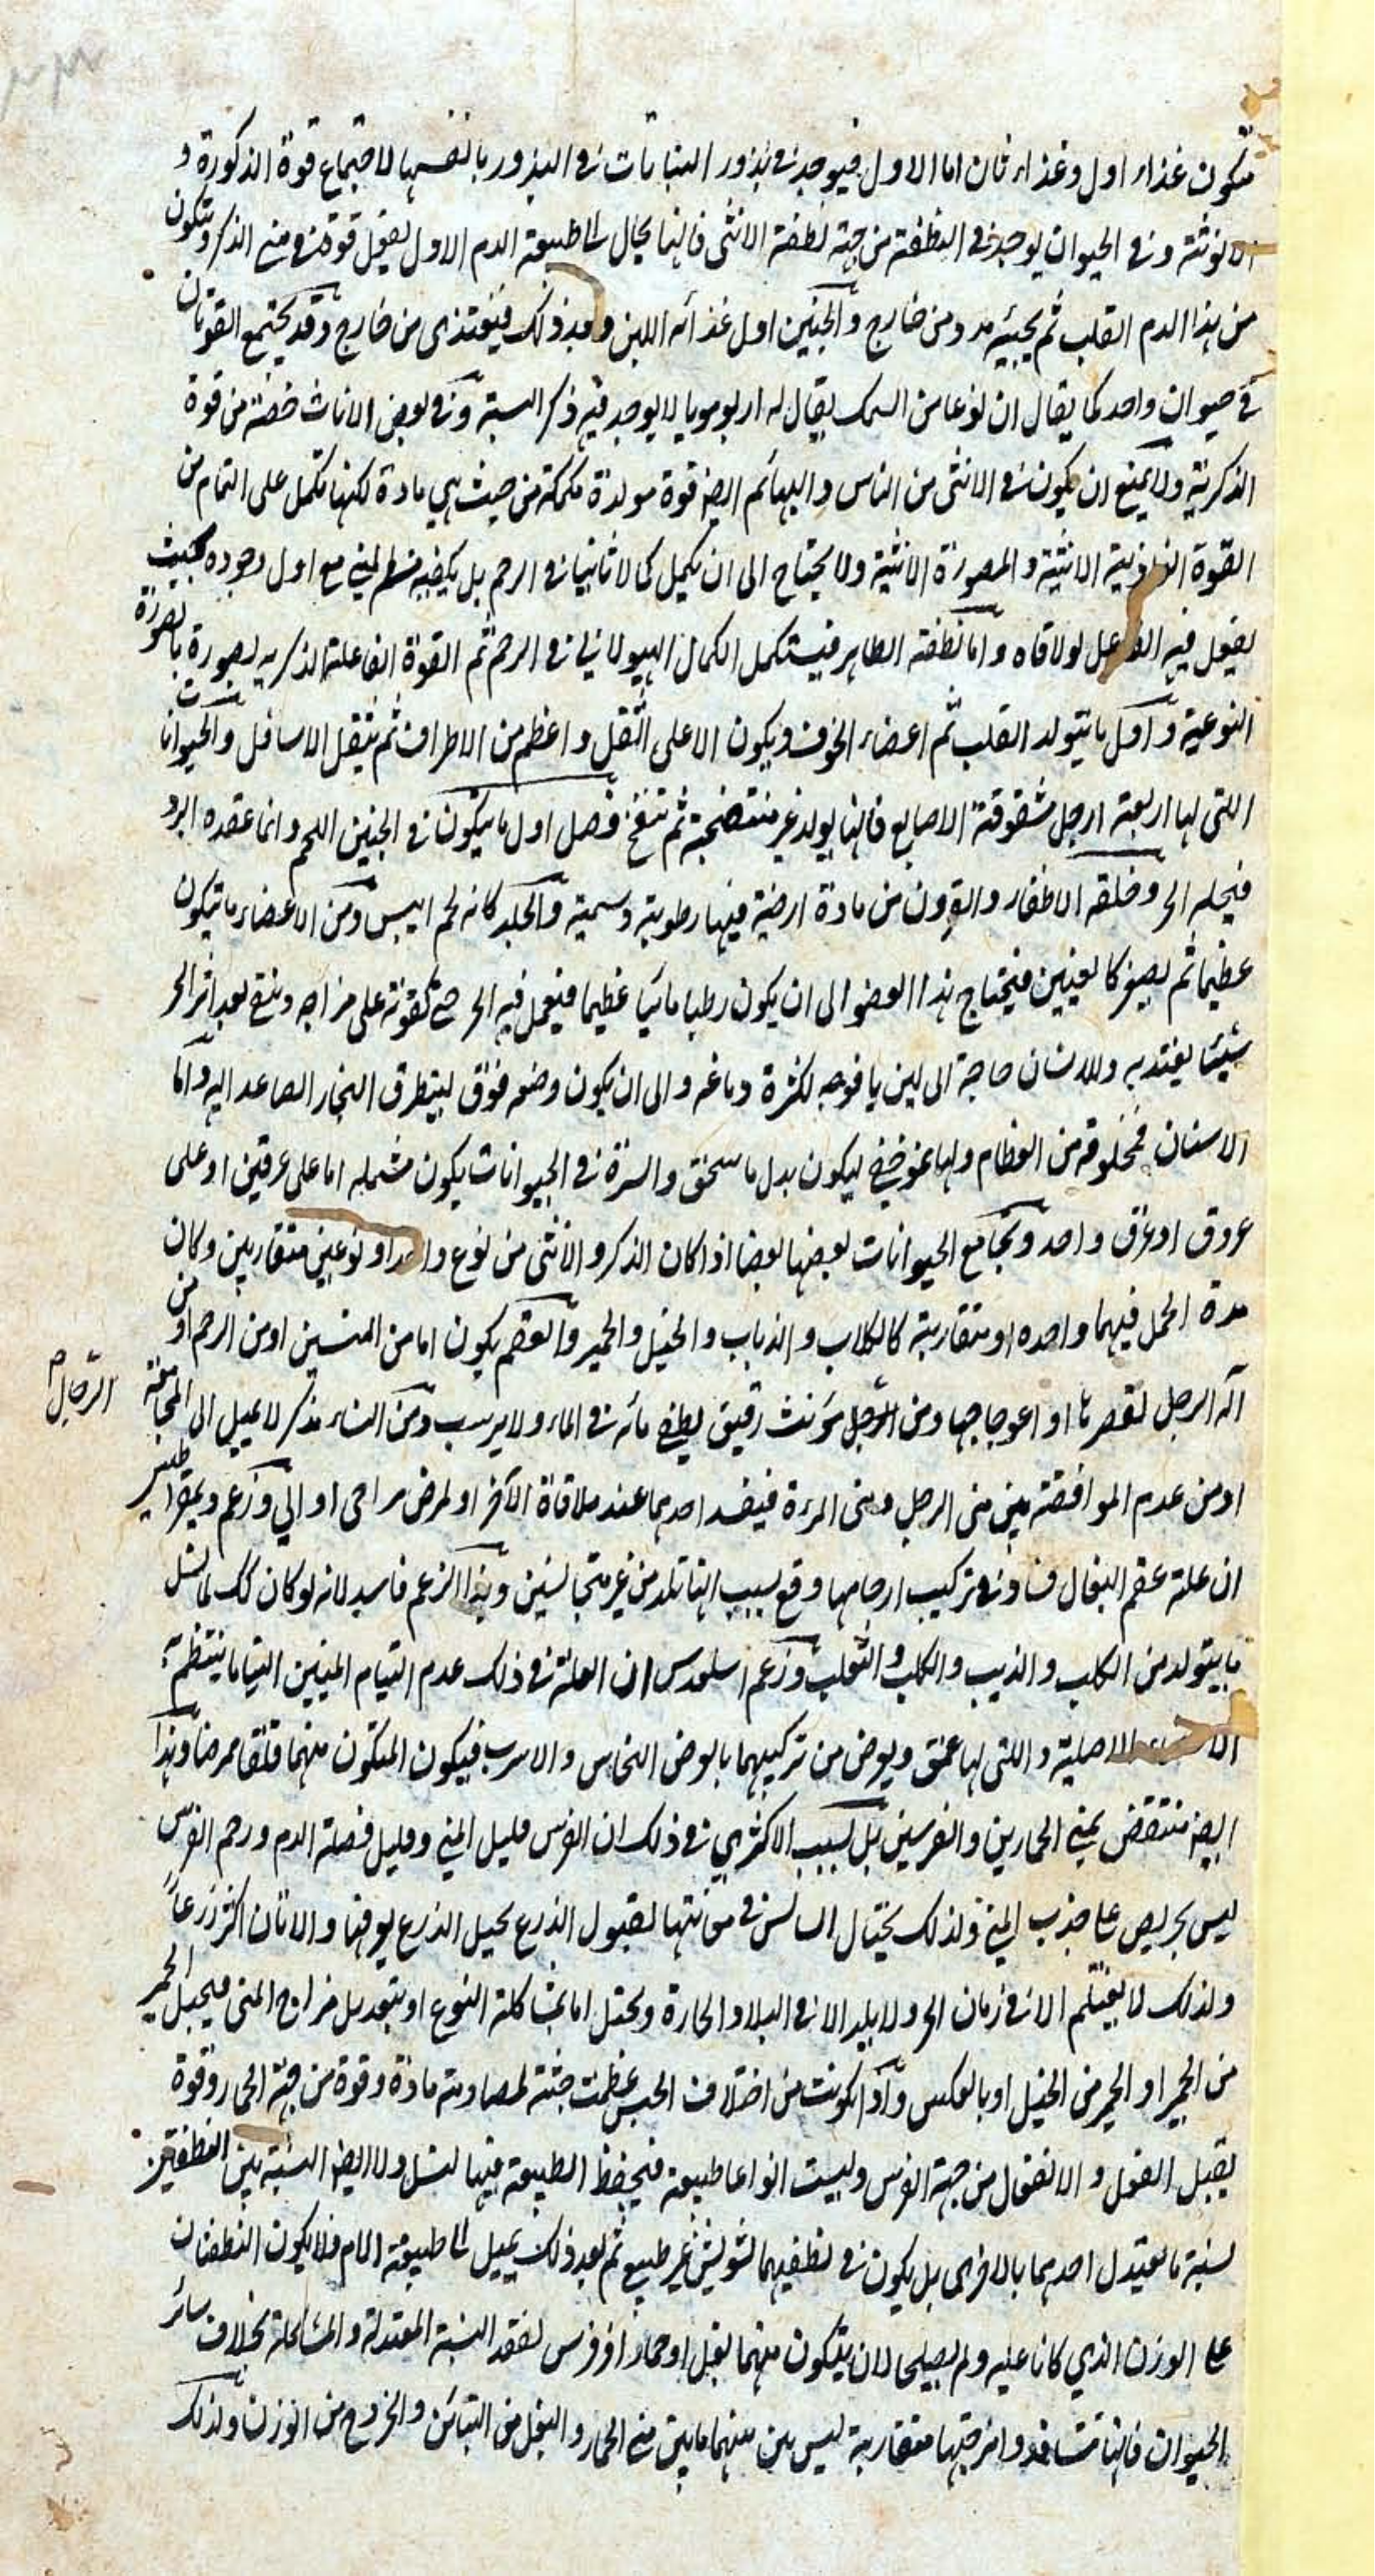 فتكون غذاء اول وغذاء ثان اما الاول فيوجد في بذور النباتات في البذور بانفسها لاجتماع قوة الذكورة و
الانوثة وفي الحيوان يوجد في النطفة من جهة نطفة الانثى فانها يحال الى طبيعة الدم الاول بفعل قوة في مني الذكر ويتكون
من هذا الدم القلب ثم يجيئه مدد من خارج والجنين اول غذائه اللبن وبعد ذلك فيغتذى من خارج وقد يجتمع القوتان
في حيوان واحد كما يقال ان نوعا من السمك يقال له اربوموبا لا يوجد فيه ذكر البتة وفي بعض الاناث حصة من قوة
الذكرية ولا يمنع ان يكون في الانثى من الناس والبهائم ايضا قوة مولدة من حيث هي مادة لكنها تكمل على التمام من
القوة الغاذية الانثية والمصورة الانثية ولا يحتاج الى ان يكمل كمالا ثانيا في الرحم بل يكفيه المني مع اول وجوده بحيث
يفعل فيه الفاعل لو لاقاه واما نطفة الطاير فيستكمل الكمال الهيولاني في الرحم ثم القوة الفاعلة الذكرية يصوره بالصورة
النوعية واول ما يتولد القلب ثم اعضاء الجوف ويكون الاعلى اثقل واعظم من الاطراف ثم يثقل الاسافل والحيوانات
التى لها اربعة ارجل مشقوقة الاصابع فانها يولد غير منتضجة ثم تنفخ فصل اول ما يتكون في الجنين اللحم وانما عقده البرد
فيحله الحر وخلقه الاظفار والقرون من مادة ارضية فيها رطوبة دسمية والجلد كانه لحم ايبس ومن الاعضاء ما يتكون
عظيما ثم يصغر كالعينين فيحتاج هذا العضو الى ان يكون رطبا مائيا عظيما فيفعل فيه الحر حتى تقوته على مزاجه ويبقى بعد اثر الحر
شيئا يعتد به وللانسان حاجة الى لين يافوخه لكثرة دماغه والى ان يكون وضعه فوق ليتطرق البخار الصاعد اليه واما
الاسنان فمخلوقة من العظام ولها عوض ليكون بدل ما ينسحق والسرة في الحيوانات يكون مشتملة اما على عرقين او على
عروق او عرق واحد وتجامع الحيوانات بعضها بعضا اذا كان الذكر والانثى من نوع واحد او نوعين متقاربين وكان
مدة الحمل فيهما واحده او متقاربة كالكلاب والذياب والخيل والحمير والعقم يكون اما من المنيين او من الرحم او من
آلة الرجل لقصرها او اعوجاجها ومن الرجل مؤنث رقيق يطفى مائه في الماء ولا يرسب ومن النساء مذكر لا يميل الى المجامعة
الرجال م
او من عدم الموافقة بين منى الرجل ومنى المرءة فيفسد احدهما عند ملاقاة الآخر او لمرض مزاجى او الي وزعم ديمقراطيس
ان علة عقم البغال فساد في تركيب ارحامها وقع بسبب انها تلد من غير متجانسين وهذا الزعم فاسد لانه لو كان كك لما نسل
ما يتولد من الكلب والذيب والكلب والثعلب وزعم اسلمدس ان العلة في ذلك عدم التيام المنيين التياما ينتظم به
الاعضاء الاصلية والتى لها عمق ويعرض من تركيبهما ما يعرض النحاس والاسرب فيكون المتكون منهما قلقا ممرضا وهذا
ايضا منتقض بمني الحمارين والفرسين بل السبب الاكثري في ذلك ان الفرس قليل المني وقليل فضلة الدم ورحم الفرس
ليس بحريص على جذب المني ولذلك يحتال السائس في مؤنتها لقبول الذرع بحيل الذرع يوفها والاتان اكثر زرعا
ولذلك لا يغتلم الا في زمان الحر ولا يلد الا في البلاد الحارة ويحتمل اما بمشاكلة النوع او بتعديل مزاج المنى فيحبل الحمير
من الحمير او الحمير من الخيل او بالعكس واذا تكونت من اختلاف الجنس عظمت جثته لمصادمة مادة وقوة من جهة الحمار وقوة
يقبل الفعل والانفعال من جهة الفرس وليست انواعا طبيعية فيحفظ الطبيعة فيها النسل ولا ايضا النسبة بين النطفتين
نسبة ما يعتدل احدهما بالاخرى بل يكون في نطفيهما تشويش غير طبيع ثم بعد ذلك يميل الى طبيعة الام فلا يكون النطفتان
على الوزن الذي كانا عليه ولم يصلحا لان يتكون منهما بغل او حمار او فرس لفقد النسبة المعتدلة والمشاكلة بخلاف سائر
الحيوان فانها تتسافد وامزجتها متقاربة ليس بين منيهما ما بين مني الحمار والبغل من التباين والخروج من الوزن ولذلك